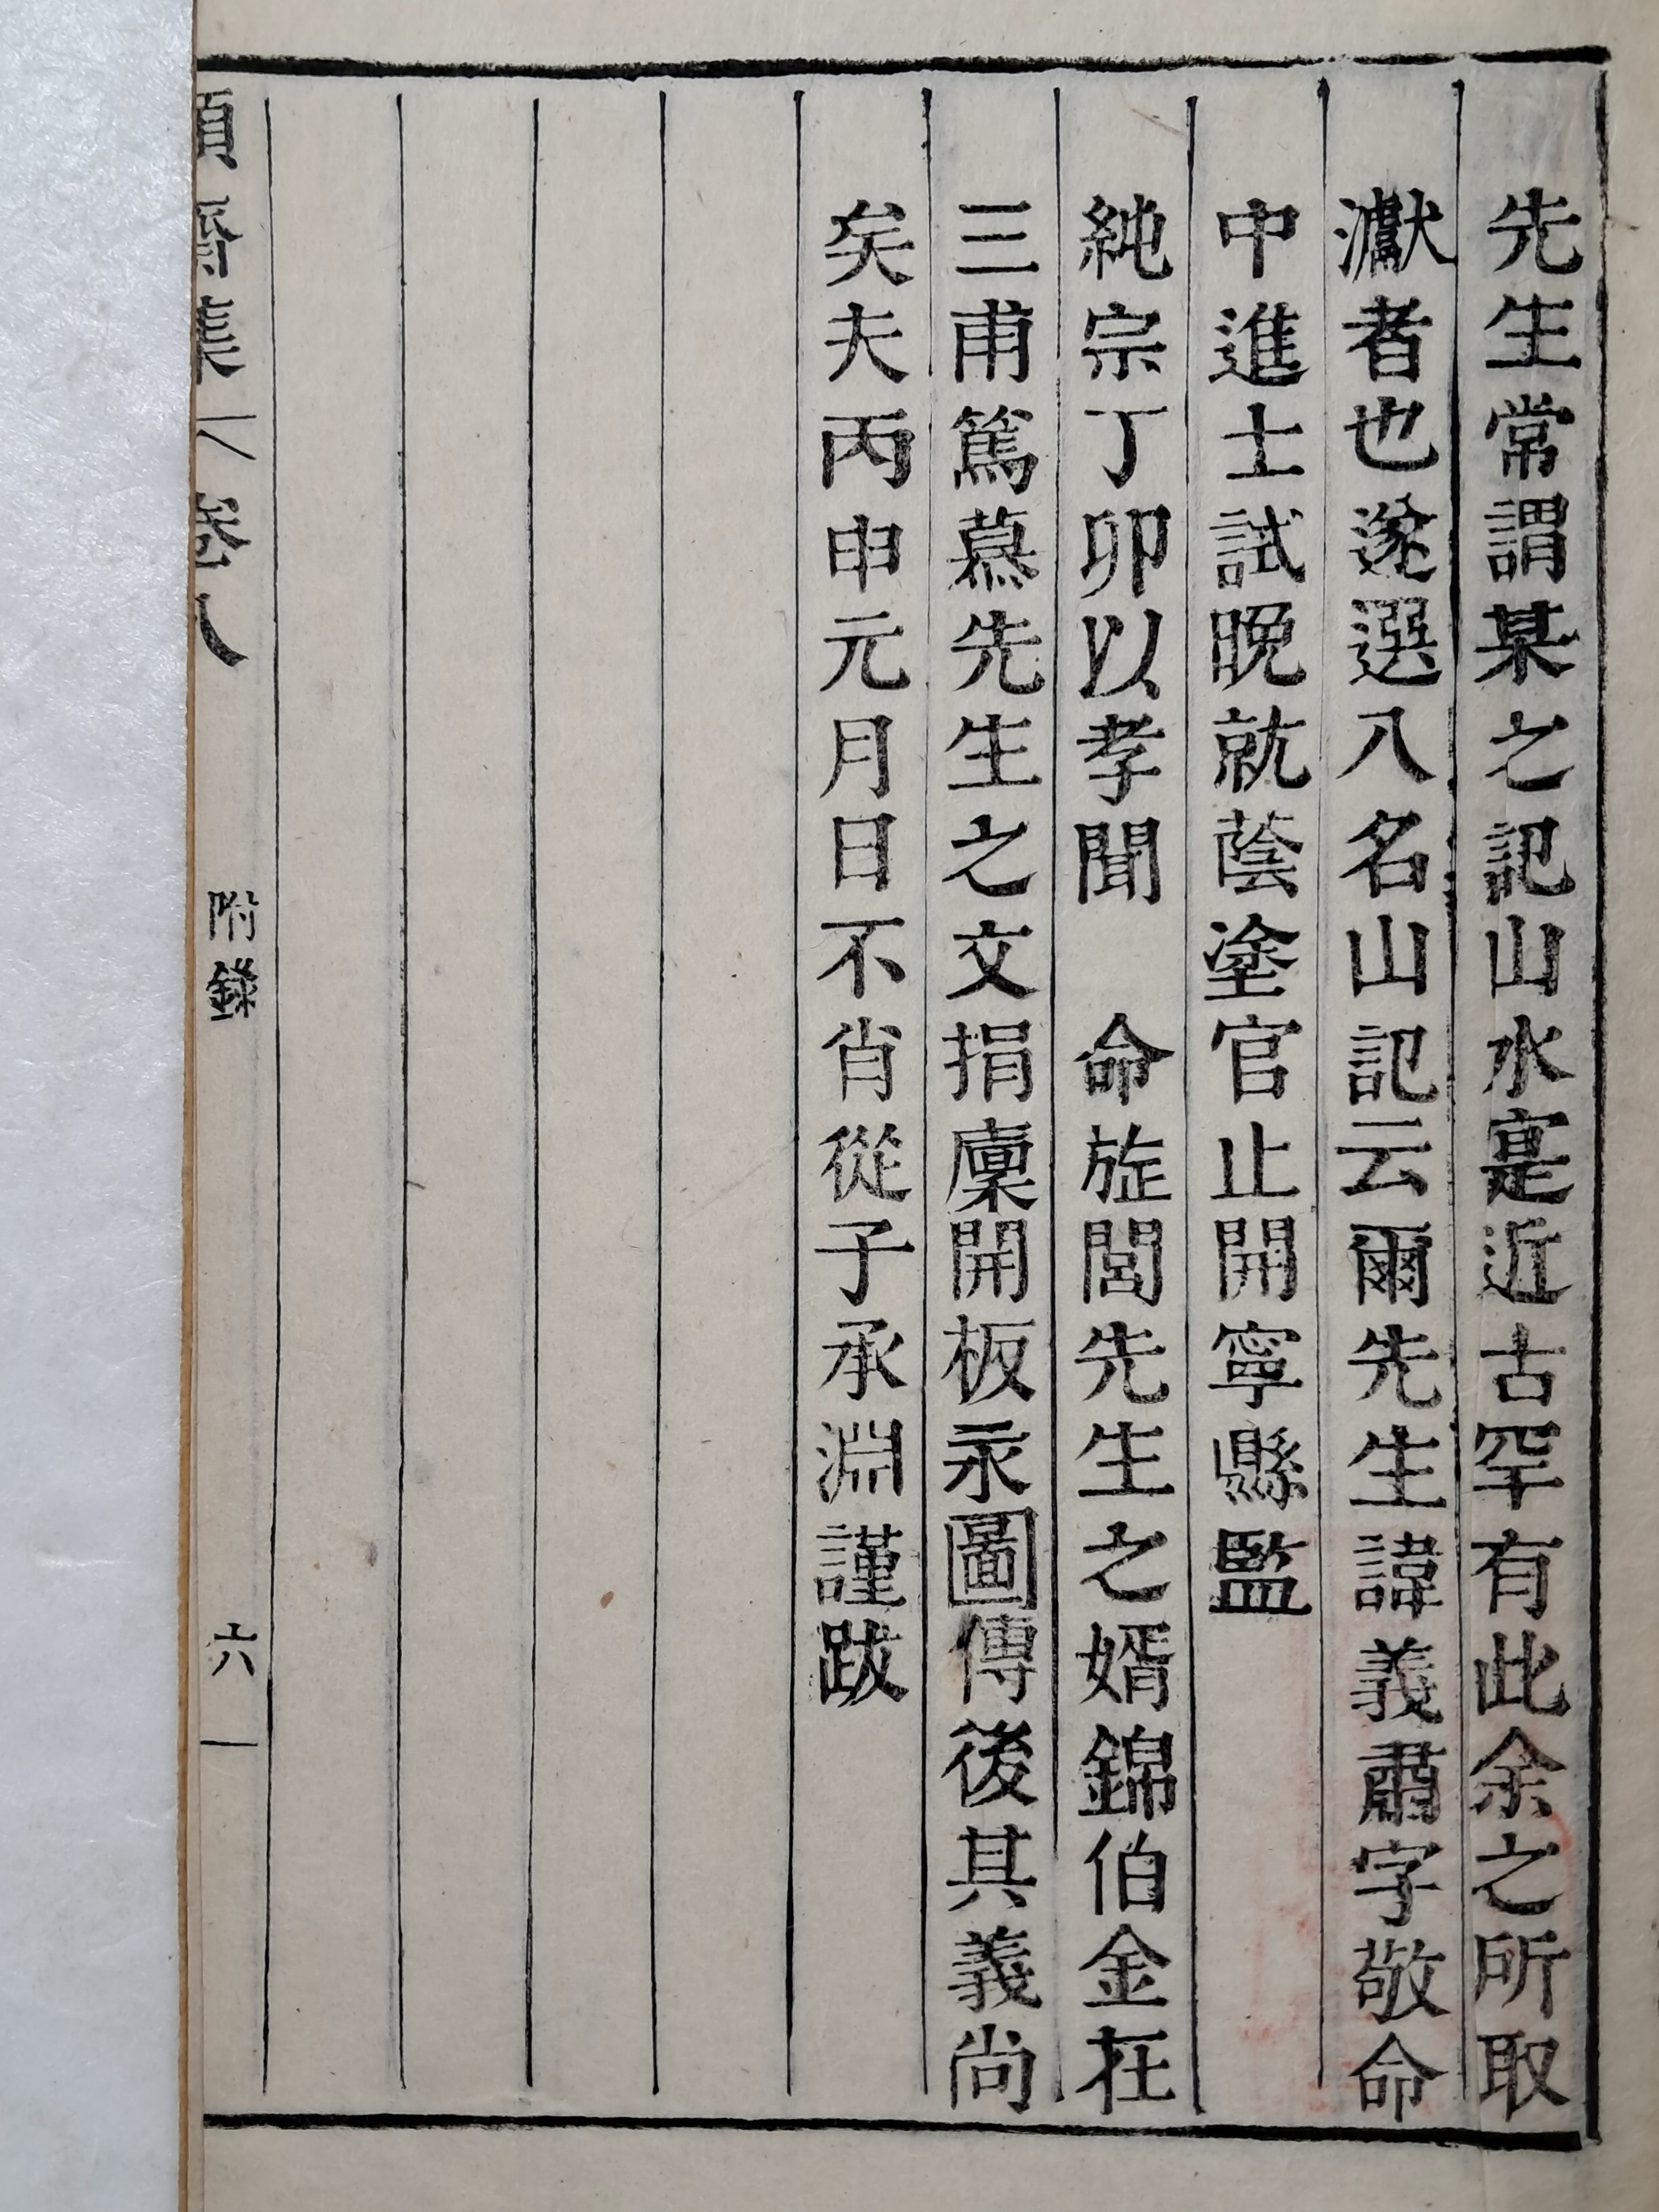 先生常謂某之記山水寔近古罕有此余之所取
瀛者也遂選入名山記云爾先生諱義肅字敬命
中進士試晚就蔭塗官止開寧縣監
純宗丁卯以孝聞　命旌閭先生之婿錦伯金在
三甫篤慕先生之文捐廩開板永圖傳後其義尚
矣夫丙申元月日不肖從子承淵謹跋
附錄
六